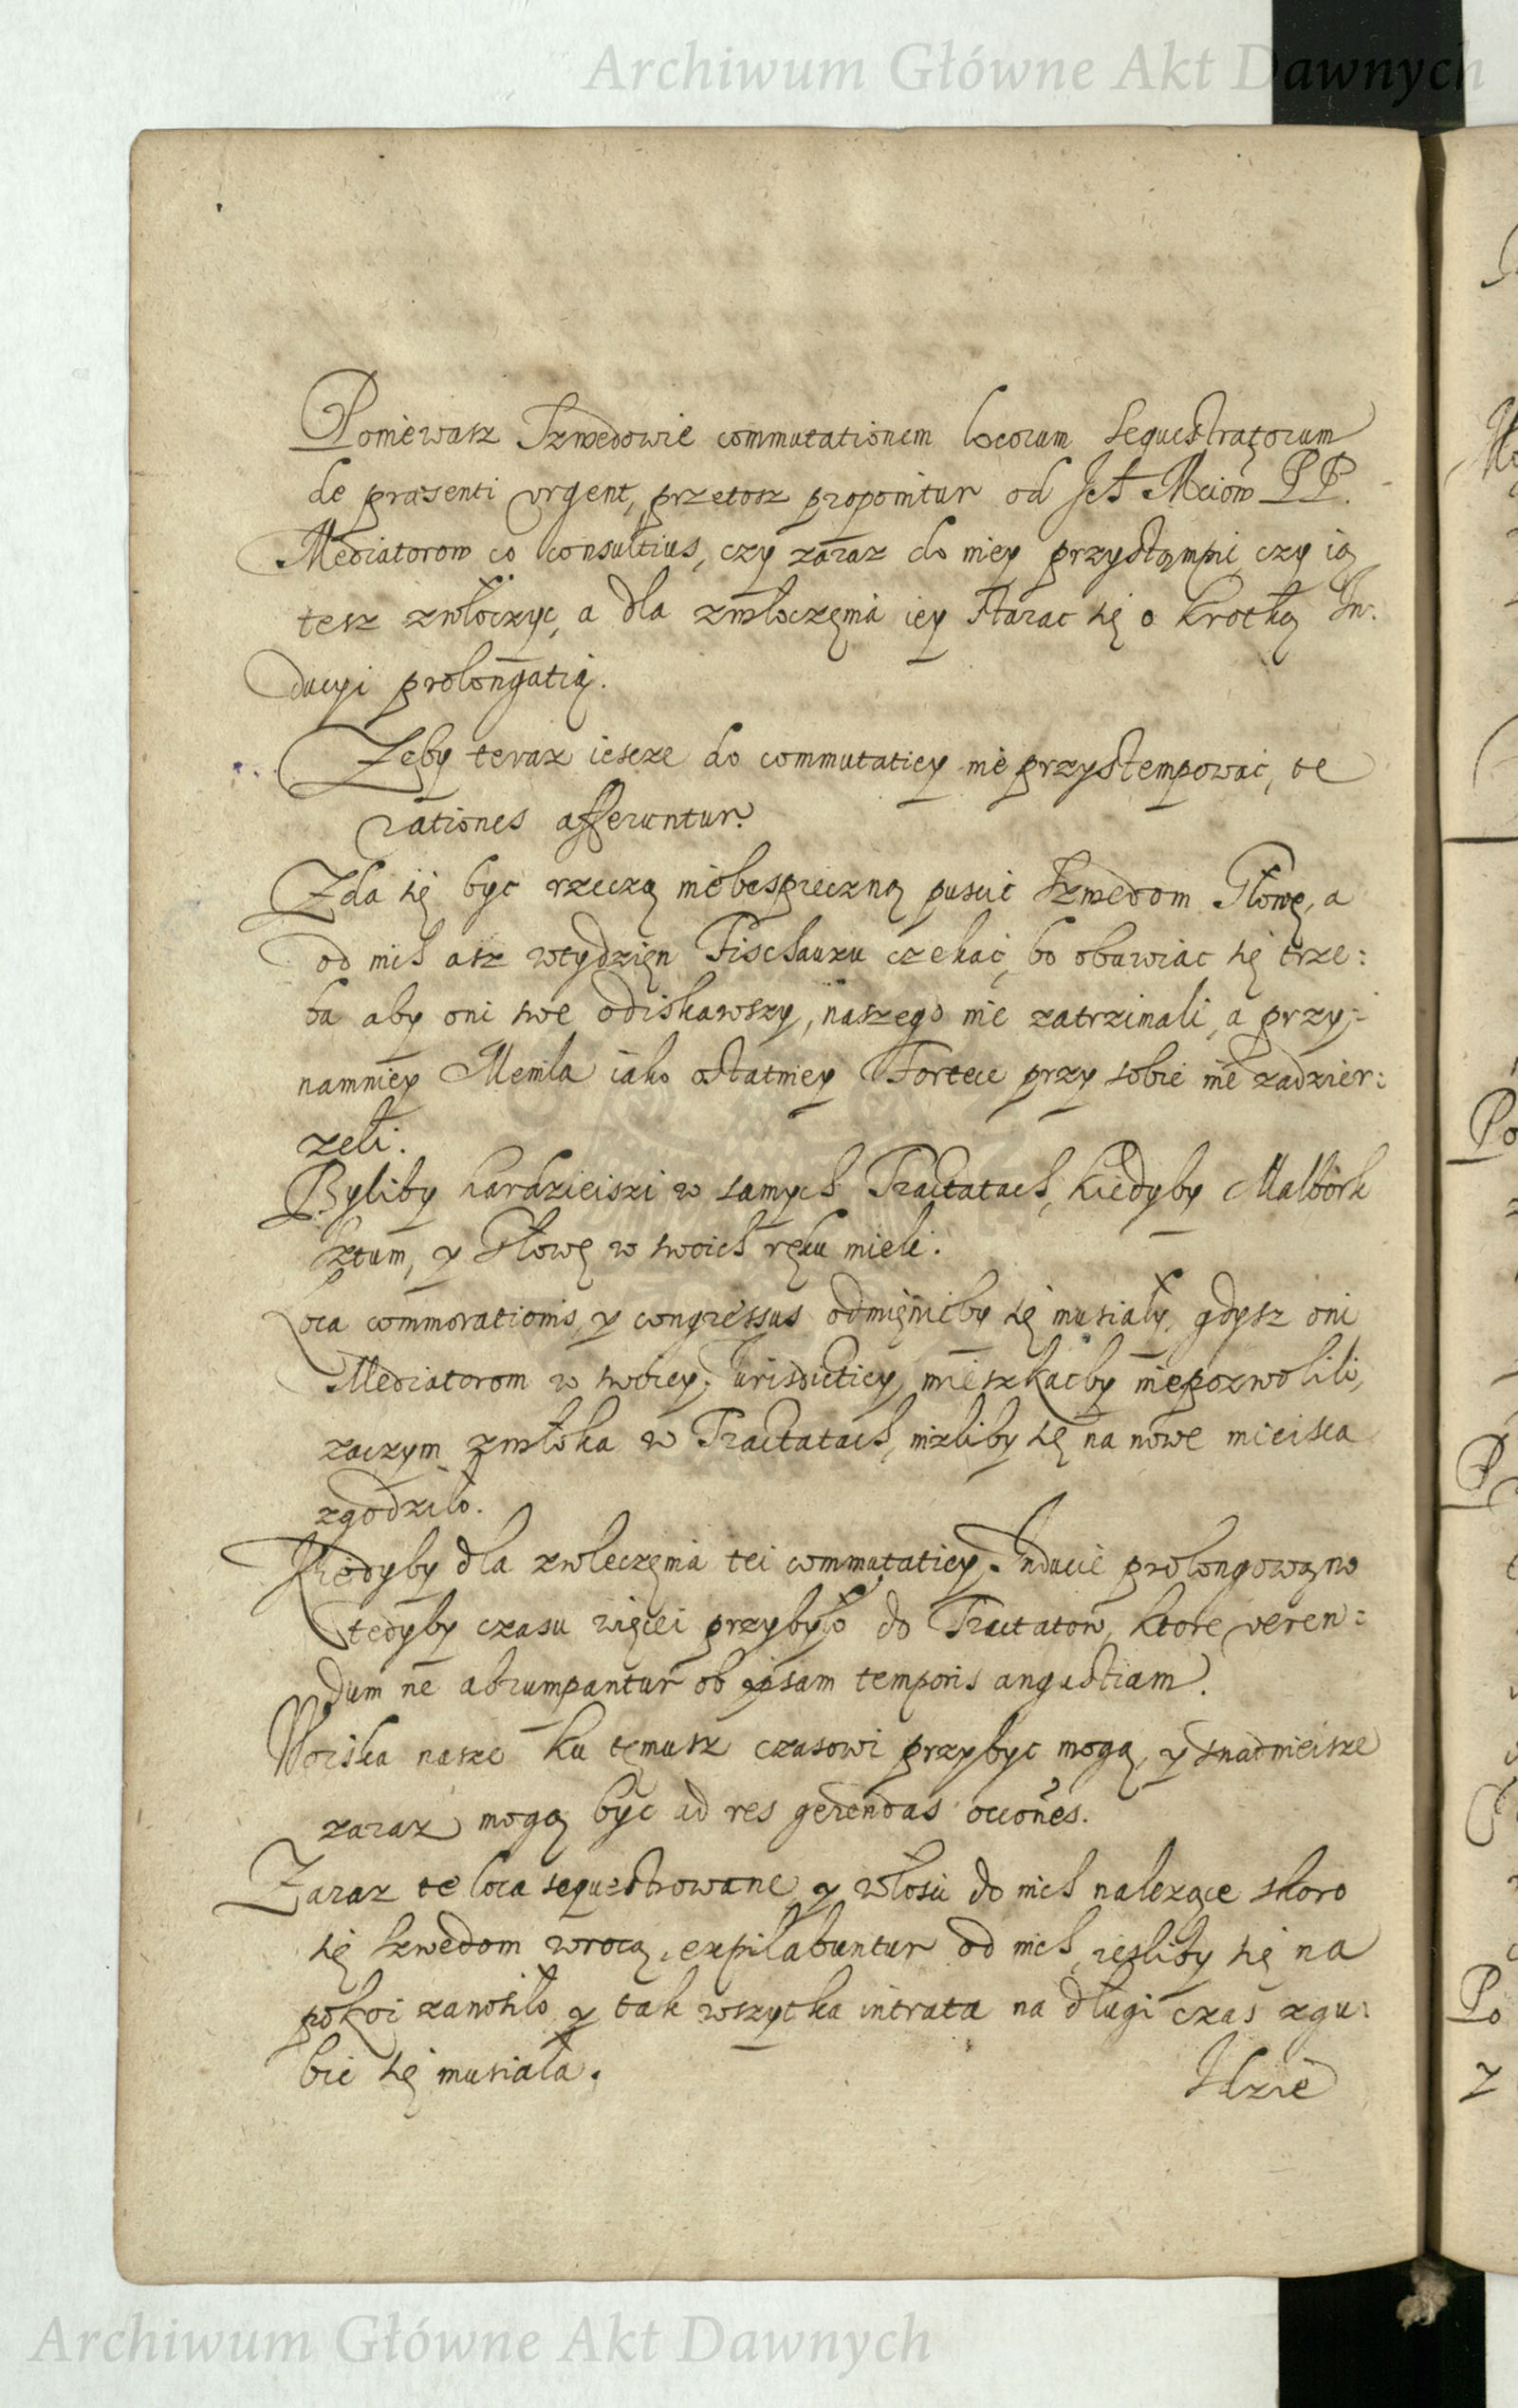 Archiwum Główne Akt Dawnych
Poniewasz Szwedowie commutationem locorum sequestratorum
de præsenti urgent, przetosz proponitur od Ich Mciow PP.
Mediatorow co consultius, czy zaraz do niey przystąmpić, czy ią
tesz zwłoczyc, a dla zwłoczęnia iey starac się o krotką In:
ducyi prolongatią.
Zeby teraz iescze do commutatiey nie przystempować, te
rationes afferuntur.
Zda się byc rzeczą niebespieczną puscić Szwedom Głowę, a
od nich asz wtydzięn Fischauzu czekać, bo obawiac się trze:
ba aby oni swe odiskawszy, naszego nie zatrzimali, a przy:
namniey Memla iako ostatniey Fortece przy sobie nie zadzier:
zeli.
Byliby hardzieiszi w samych Tractatach, kiedyby Malbork
Sztum, y Głowę w swoich ręku mieli.
Loca commorationis, y congressus odmięnićby się musiały, gdysz oni
Mediatorom w swoiey Iurisdictiey mieszkaćby niepozwolili,
zaczym zwłoka w Tractatach, nizliby się na nowe mieisca
zgodziło.
Kiedyby dla zwleczęnia tei commutatiey Inducie prolongowąno
tedyby czasu więcei przybyło do Tractatow, ktore veren:
dum ne abrumpantur ob ipsam temporis angustiam.
Woiska nasze ku tęmusz czasowi przybyc mogą, y snadnieisze
zaraz mogą byc ad res gerendas occones.
Zaraz te loca sequestrowane y włosci do nich nalezące skoro
się Szwedom wrocą, expilabuntur od nich, iesliby się na
pokoi zanosiło y tak wszytka intrata na długi czas zgu:
bic się musiała.
Idzie
Archiwum Główne Akt Dawnych